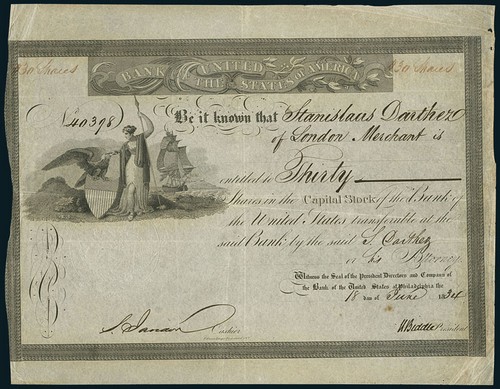 BANK OF THE UNITED STATES OF AMERICA
30 Shares 30 Shares
No 40398
Be it known that Stanislaus Darthez
of London Merchant is
entitled to Thirty
Shares in the Capital Stock of the Bank of
the United States transferable at the
said Bank by the said S. Darthez
or his Attorney.
Witness the Seal of the President Directors and Company of
the Bank of the United States at Philadelphia the
18 day of June 1834
Cashier
N Biddle President